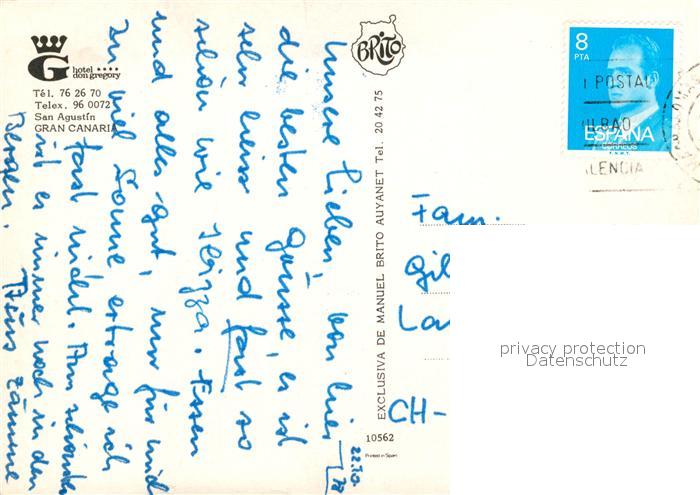 G hotel ****
don gregory
Tél. 76 26 70
Telex. 96 0072
San Agustín
GRAN CANARIA
22.10.
78
Unsere Lieben, von hier
die besten Grüsse, es ist
sehr heiss und fast so
schön wie Ibiza. Essen
und alles gut, nur für mich
zu viel Sonne, ertrage ich
fast nicht. Am schönsten
ist es immer noch in den
Bergen. Tschüs zämme
BRITO
EXCLUSIVA DE MANUEL BRITO AUYANET Tel. 20 42 75
10562
Printed in Spain
8
PTA
ESPAÑA
CORREOS
F.N.M.T.
POSTAL
LBAO
LENCIA
Fam.
Gil
La
CH-
privacy protection
Datenschutz